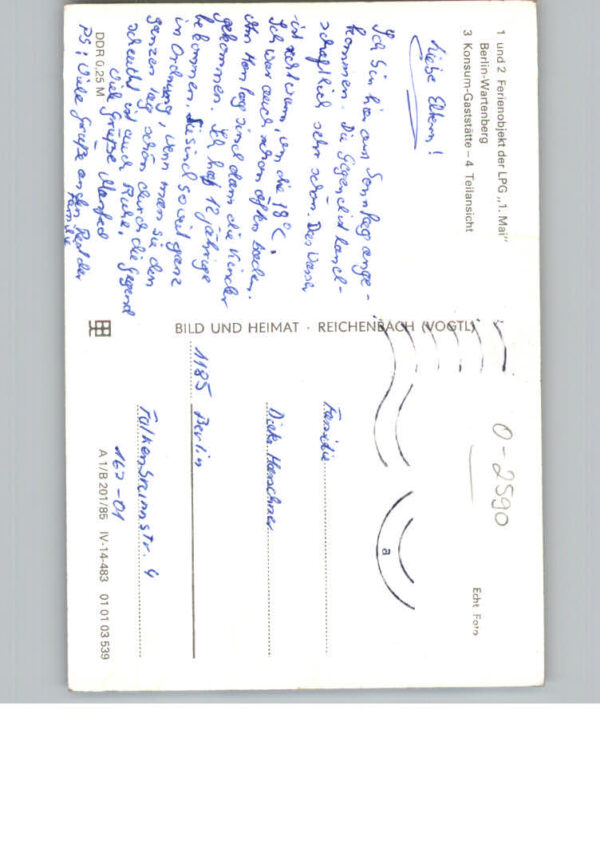 1 und 2 Ferienobjekt der LPG „1. Mai"
Berlin-Wartenberg
3 Konsum-Gaststätte – 4 Teilansicht
Liebe Eltern!
Ich bin hier am Sonntag ange-
kommen. Die Gegend ist land-
schaftlich sehr schön. Das Wasser
ist warm, um die 18°C.
Ich war auch schon öfter baden.
Am Montag sind dann die Kinder
gekommen. Ich hab 12 jährige
bekommen. Sie sind soweit ganz
in Ordnung, wenn man sie den
ganzen Tag schön durch die Gegend
scheucht ist auch Ruhe.
Viele Grüße Manfred
PS: Viele Grüße an den Rest der
Familie
DDR 0,25 M
BILD UND HEIMAT · REICHENBACH (VOGTL)
0-2590
Echt Foto
a
Familie
Dieter
1185 Berlin
Falkenbrunnstr. 4
162-01
A 1/B 201/85 IV-14-483 01 01 03 539